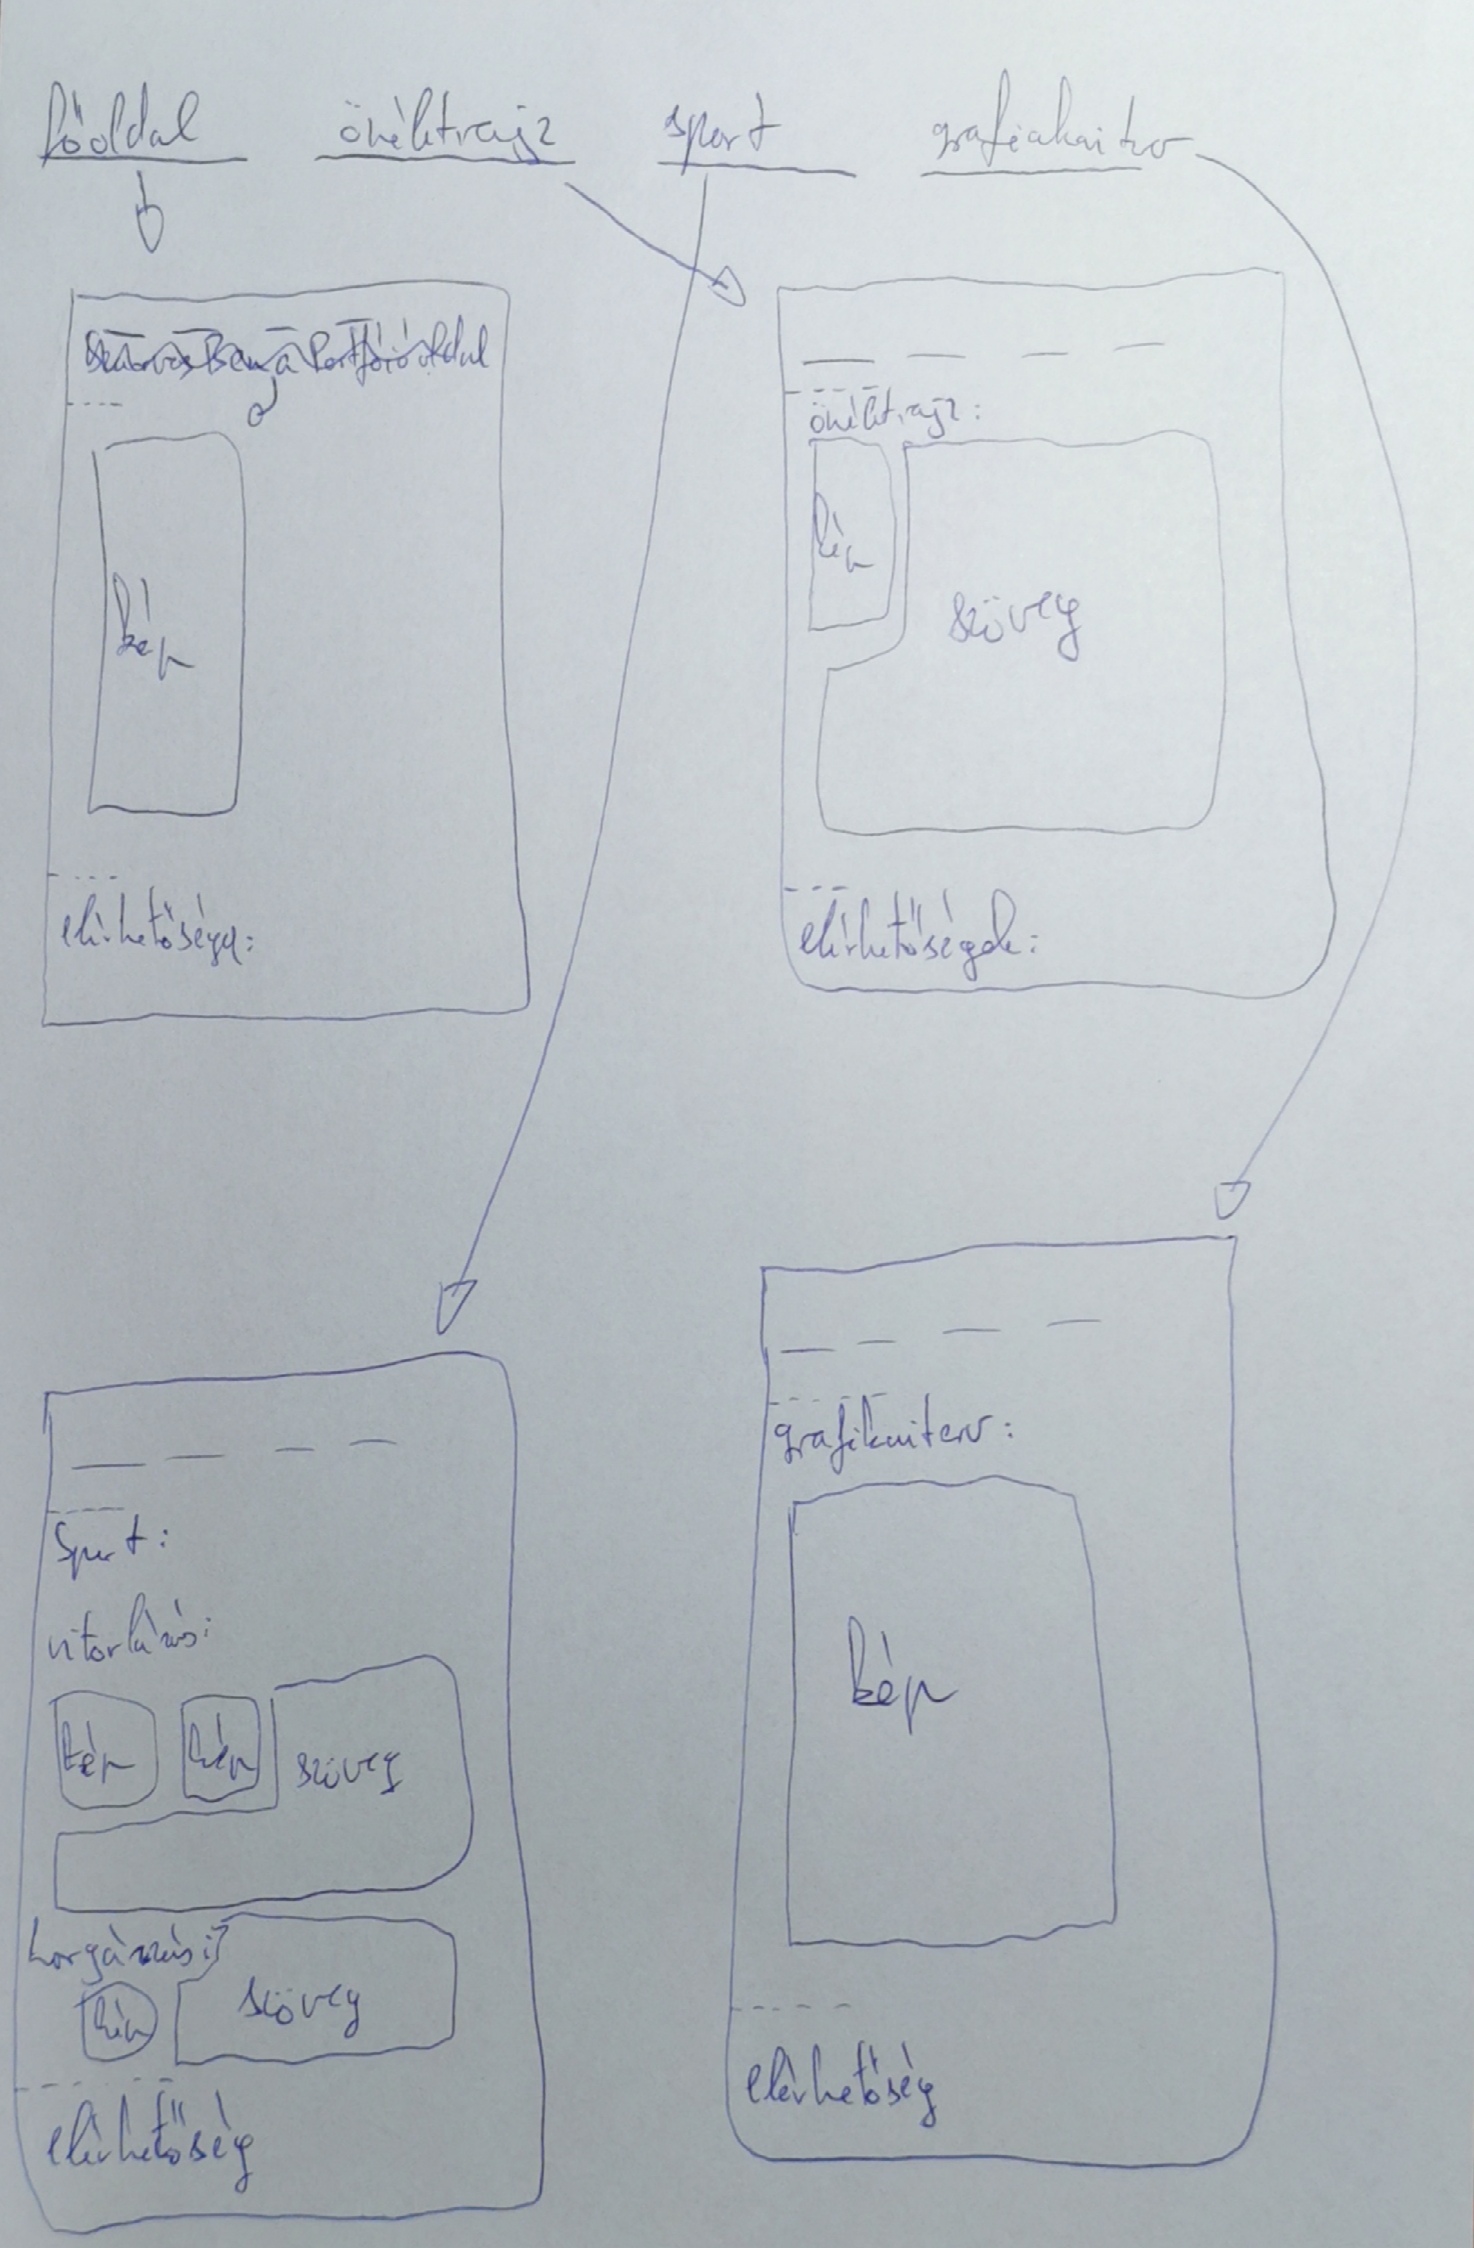 főoldal önéletrajz sport grafikaiterv
Portfólió oldal
kép
elérhetőség:
önéletrajz:
kép
szöveg
elérhetőségek:
Sport:
vitorlázás:
kép kép szöveg
horgászás:
kép szöveg
elérhetőség
grafikaiterv:
kép
elérhetőség